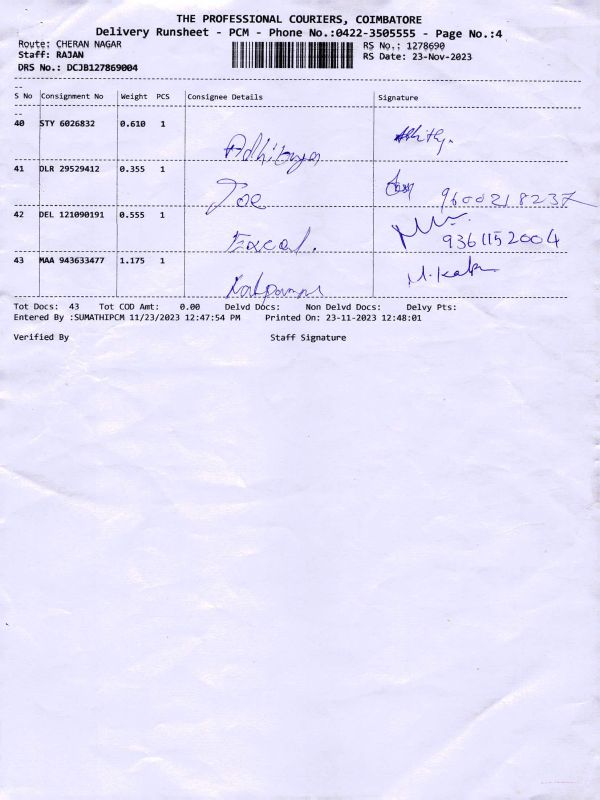 THE PROFESSIONAL COURIERS, COIMBATORE
Delivery Runsheet - PCM - Phone No.:0422-3505555 - Page No.:4
Route: CHERAN NAGAR RS No.: 1278690
Staff: RAJAN RS Date: 23-Nov-2023
DRS No.: DCJB127869004
--
S No Consignment No Weight PCS Consignee Details Signature
--
40 STY 6026832 0.610 1
41 DLR 29529412 0.355 1
Joe 9600218237
42 DEL 121090191 0.555 1
Excel. 9361152004
43 MAA 943633477 1.175 1
Tot Docs: 43 Tot COD Amt: 0.00 Delvd Docs: Non Delvd Docs: Delvy Pts:
Entered By :SUMATHIPCM 11/23/2023 12:47:54 PM Printed On: 23-11-2023 12:48:01
Verified By Staff Signature